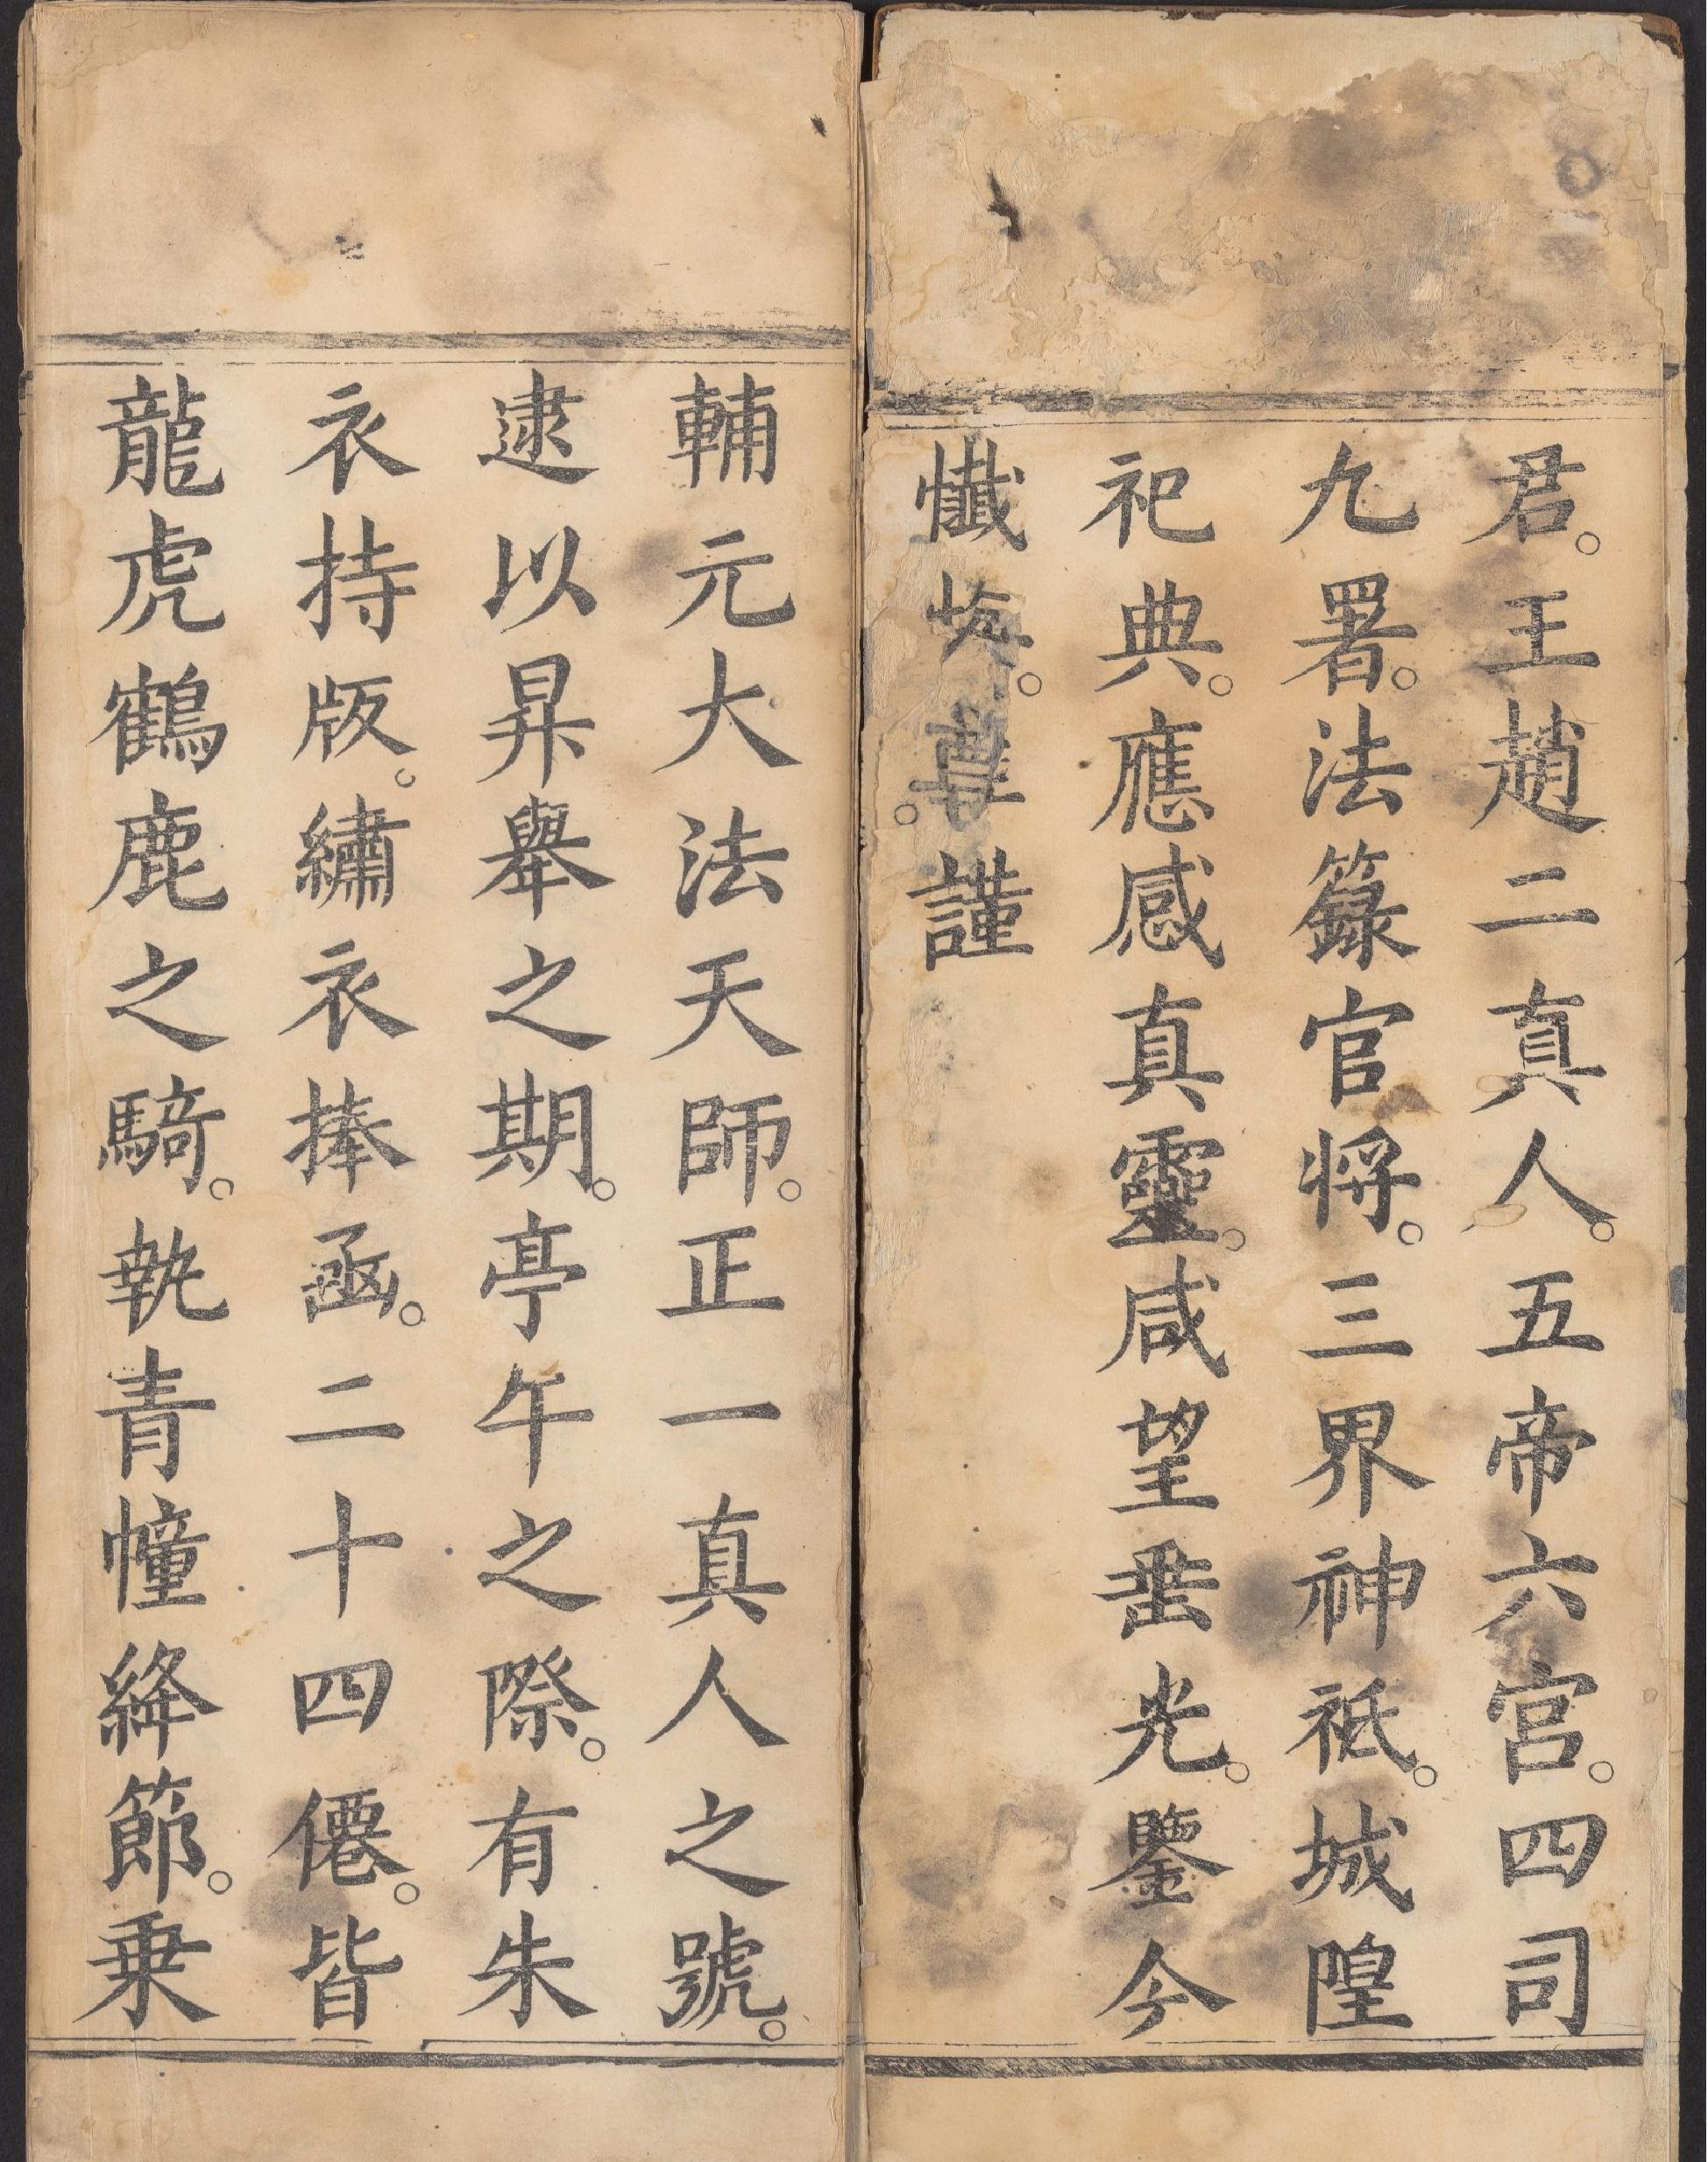 君。王趙二真人。五帝六宮。四司
九署。法籙官将。三界神祇。城隍
祀典。應感真靈。咸望垂光。鑒今
懺悔。謹
輔元大法天師。正一真人之號。
逮以昇舉之期。亭午之際。有朱
衣持版。繡衣捧函。二十四僊。皆
龍虎鶴鹿之騎。執青幢絳節。乗